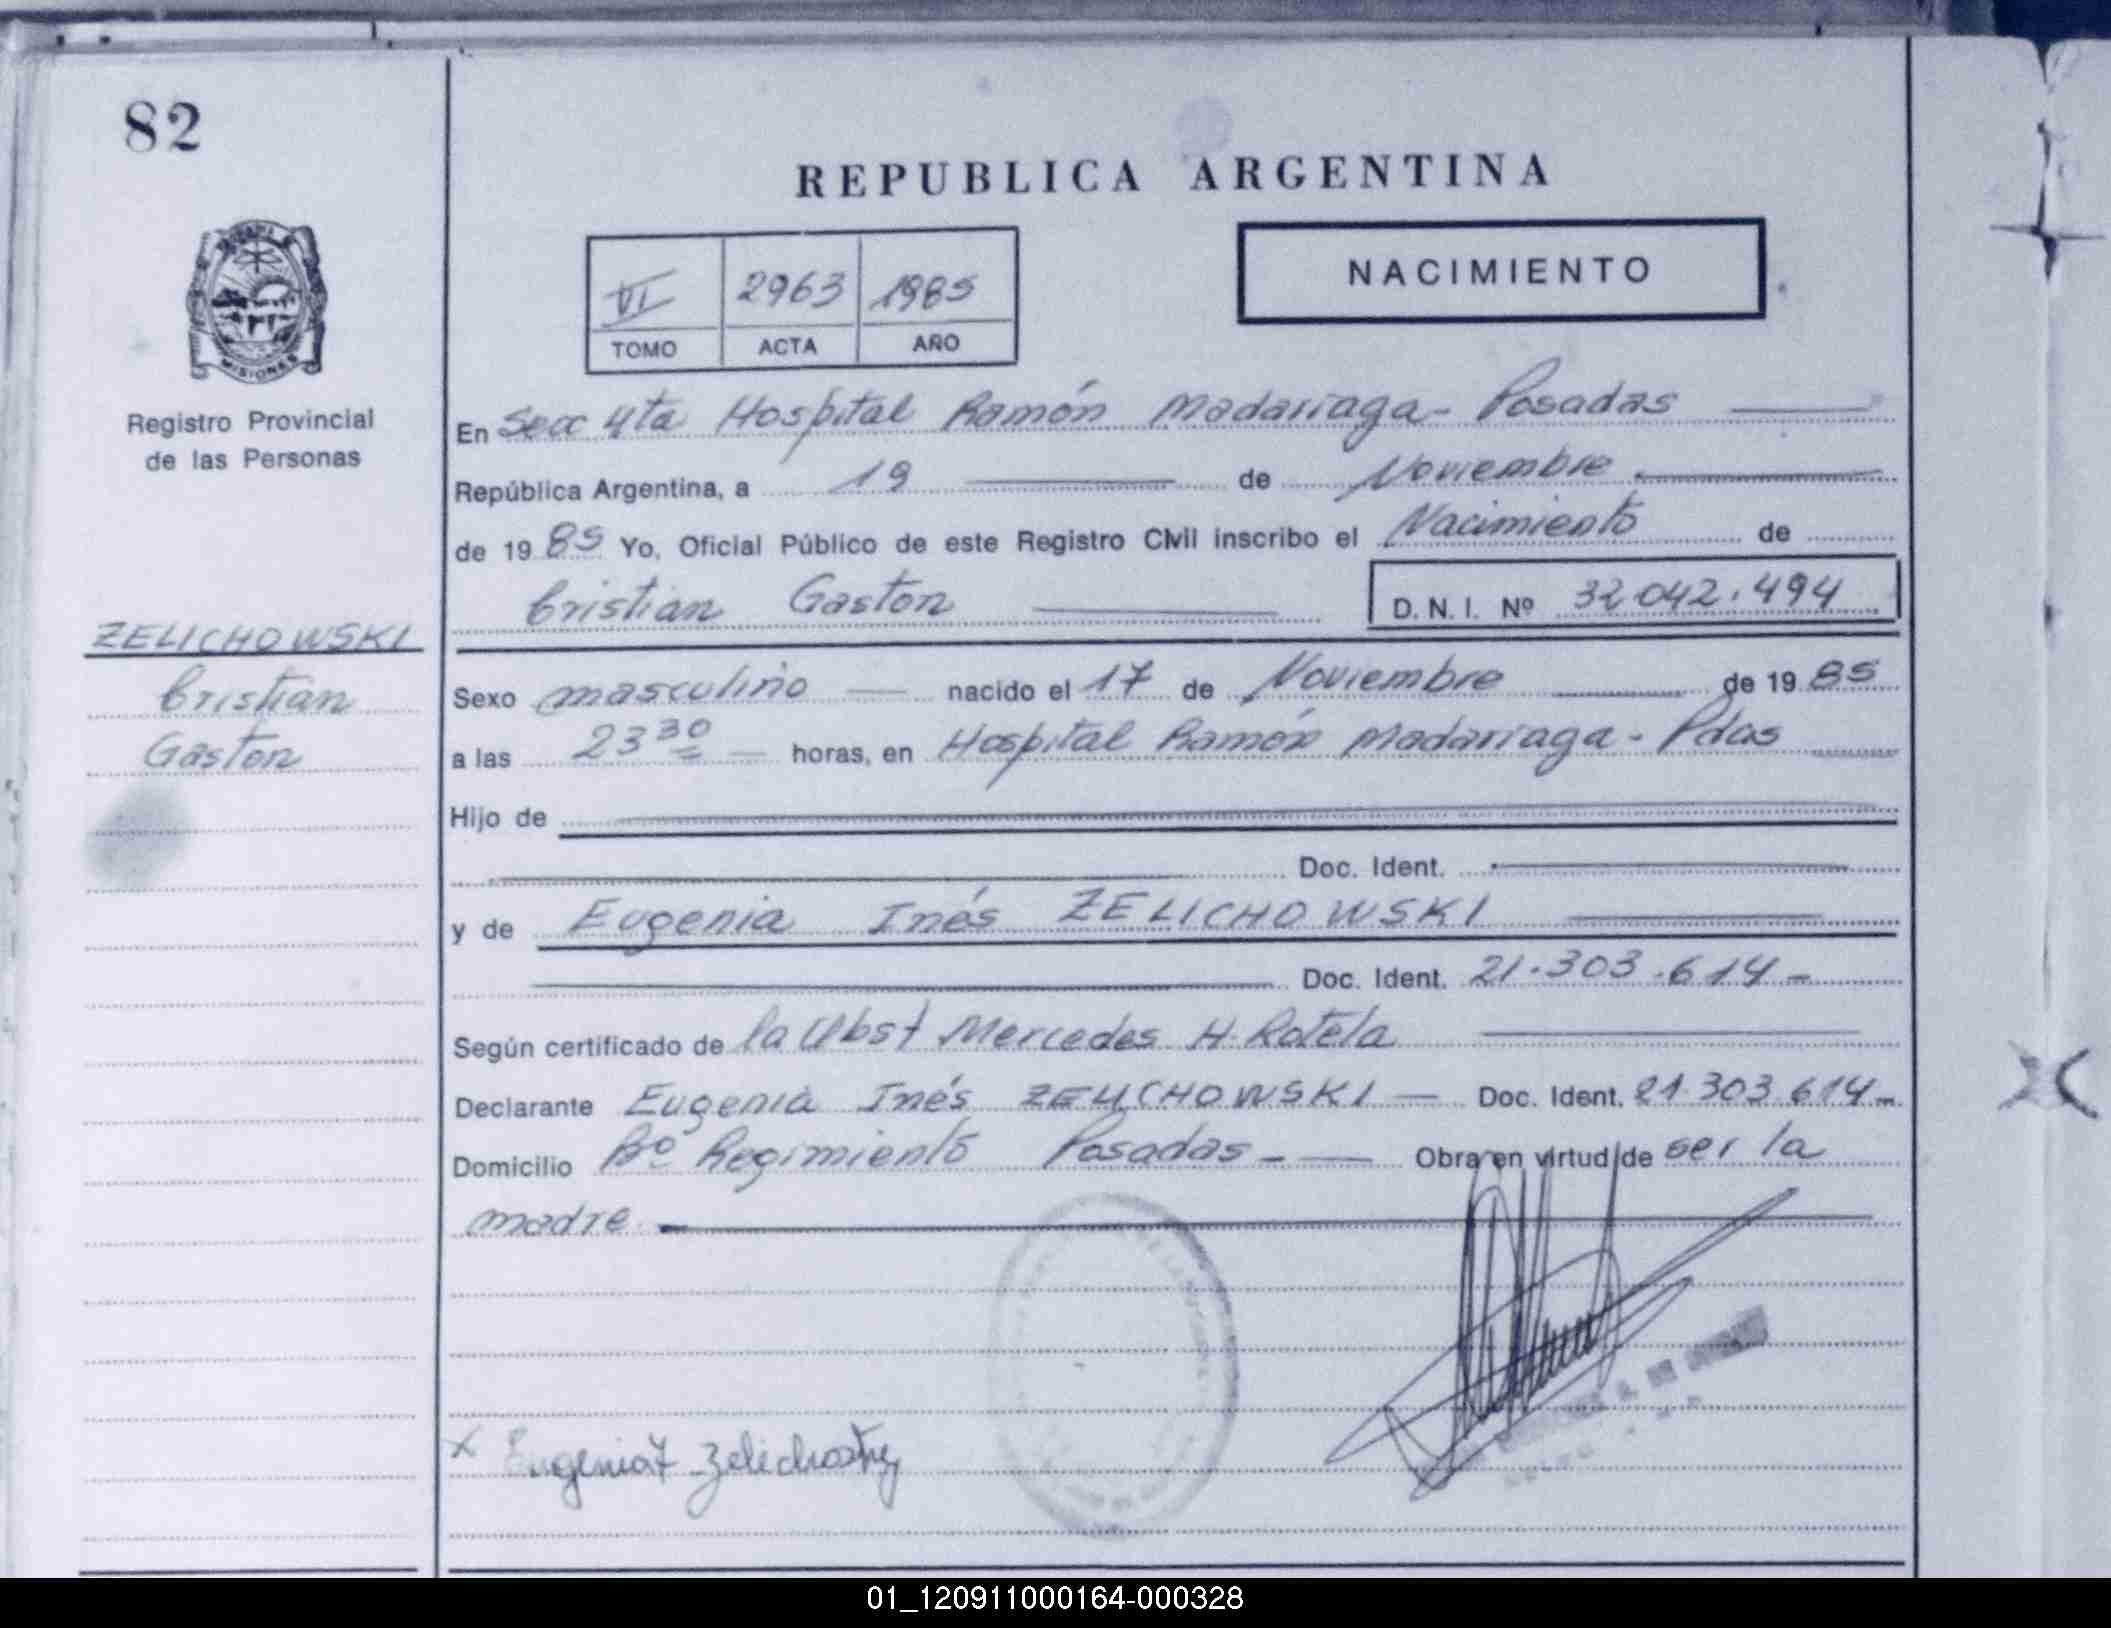 82
REPUBLICA ARGENTINA
VI 2963 1985
TOMO ACTA AÑO
NACIMIENTO
MISIONES
Registro Provincial
de las Personas
ZELICHOWSKI
Cristian
Gaston
En Secc 4ta Hospital Ramón Madariaga - Posadas
República Argentina, a 19 de Noviembre
de 1985 Yo, Oficial Público de este Registro Civil inscribo el Nacimiento de
Cristian Gaston D. N. I. Nº 32.042.494
Sexo masculino nacido el 17 de Noviembre de 1985
a las 23 30 horas, en Hospital Ramón Madariaga - Pdas
Hijo de
Doc. Ident.
y de Eugenia Inés ZELICHOWSKI
Doc. Ident. 21.303.614 -
Según certificado de la Obst Mercedes H. Rotela
Declarante Eugenia Inés ZELICHOWSKI - Doc. Ident. 21.303.614 -
Domicilio Bº Regimiento Posadas - Obra en virtud de ser la
madre
x Eugenia
01_120911000164-000328